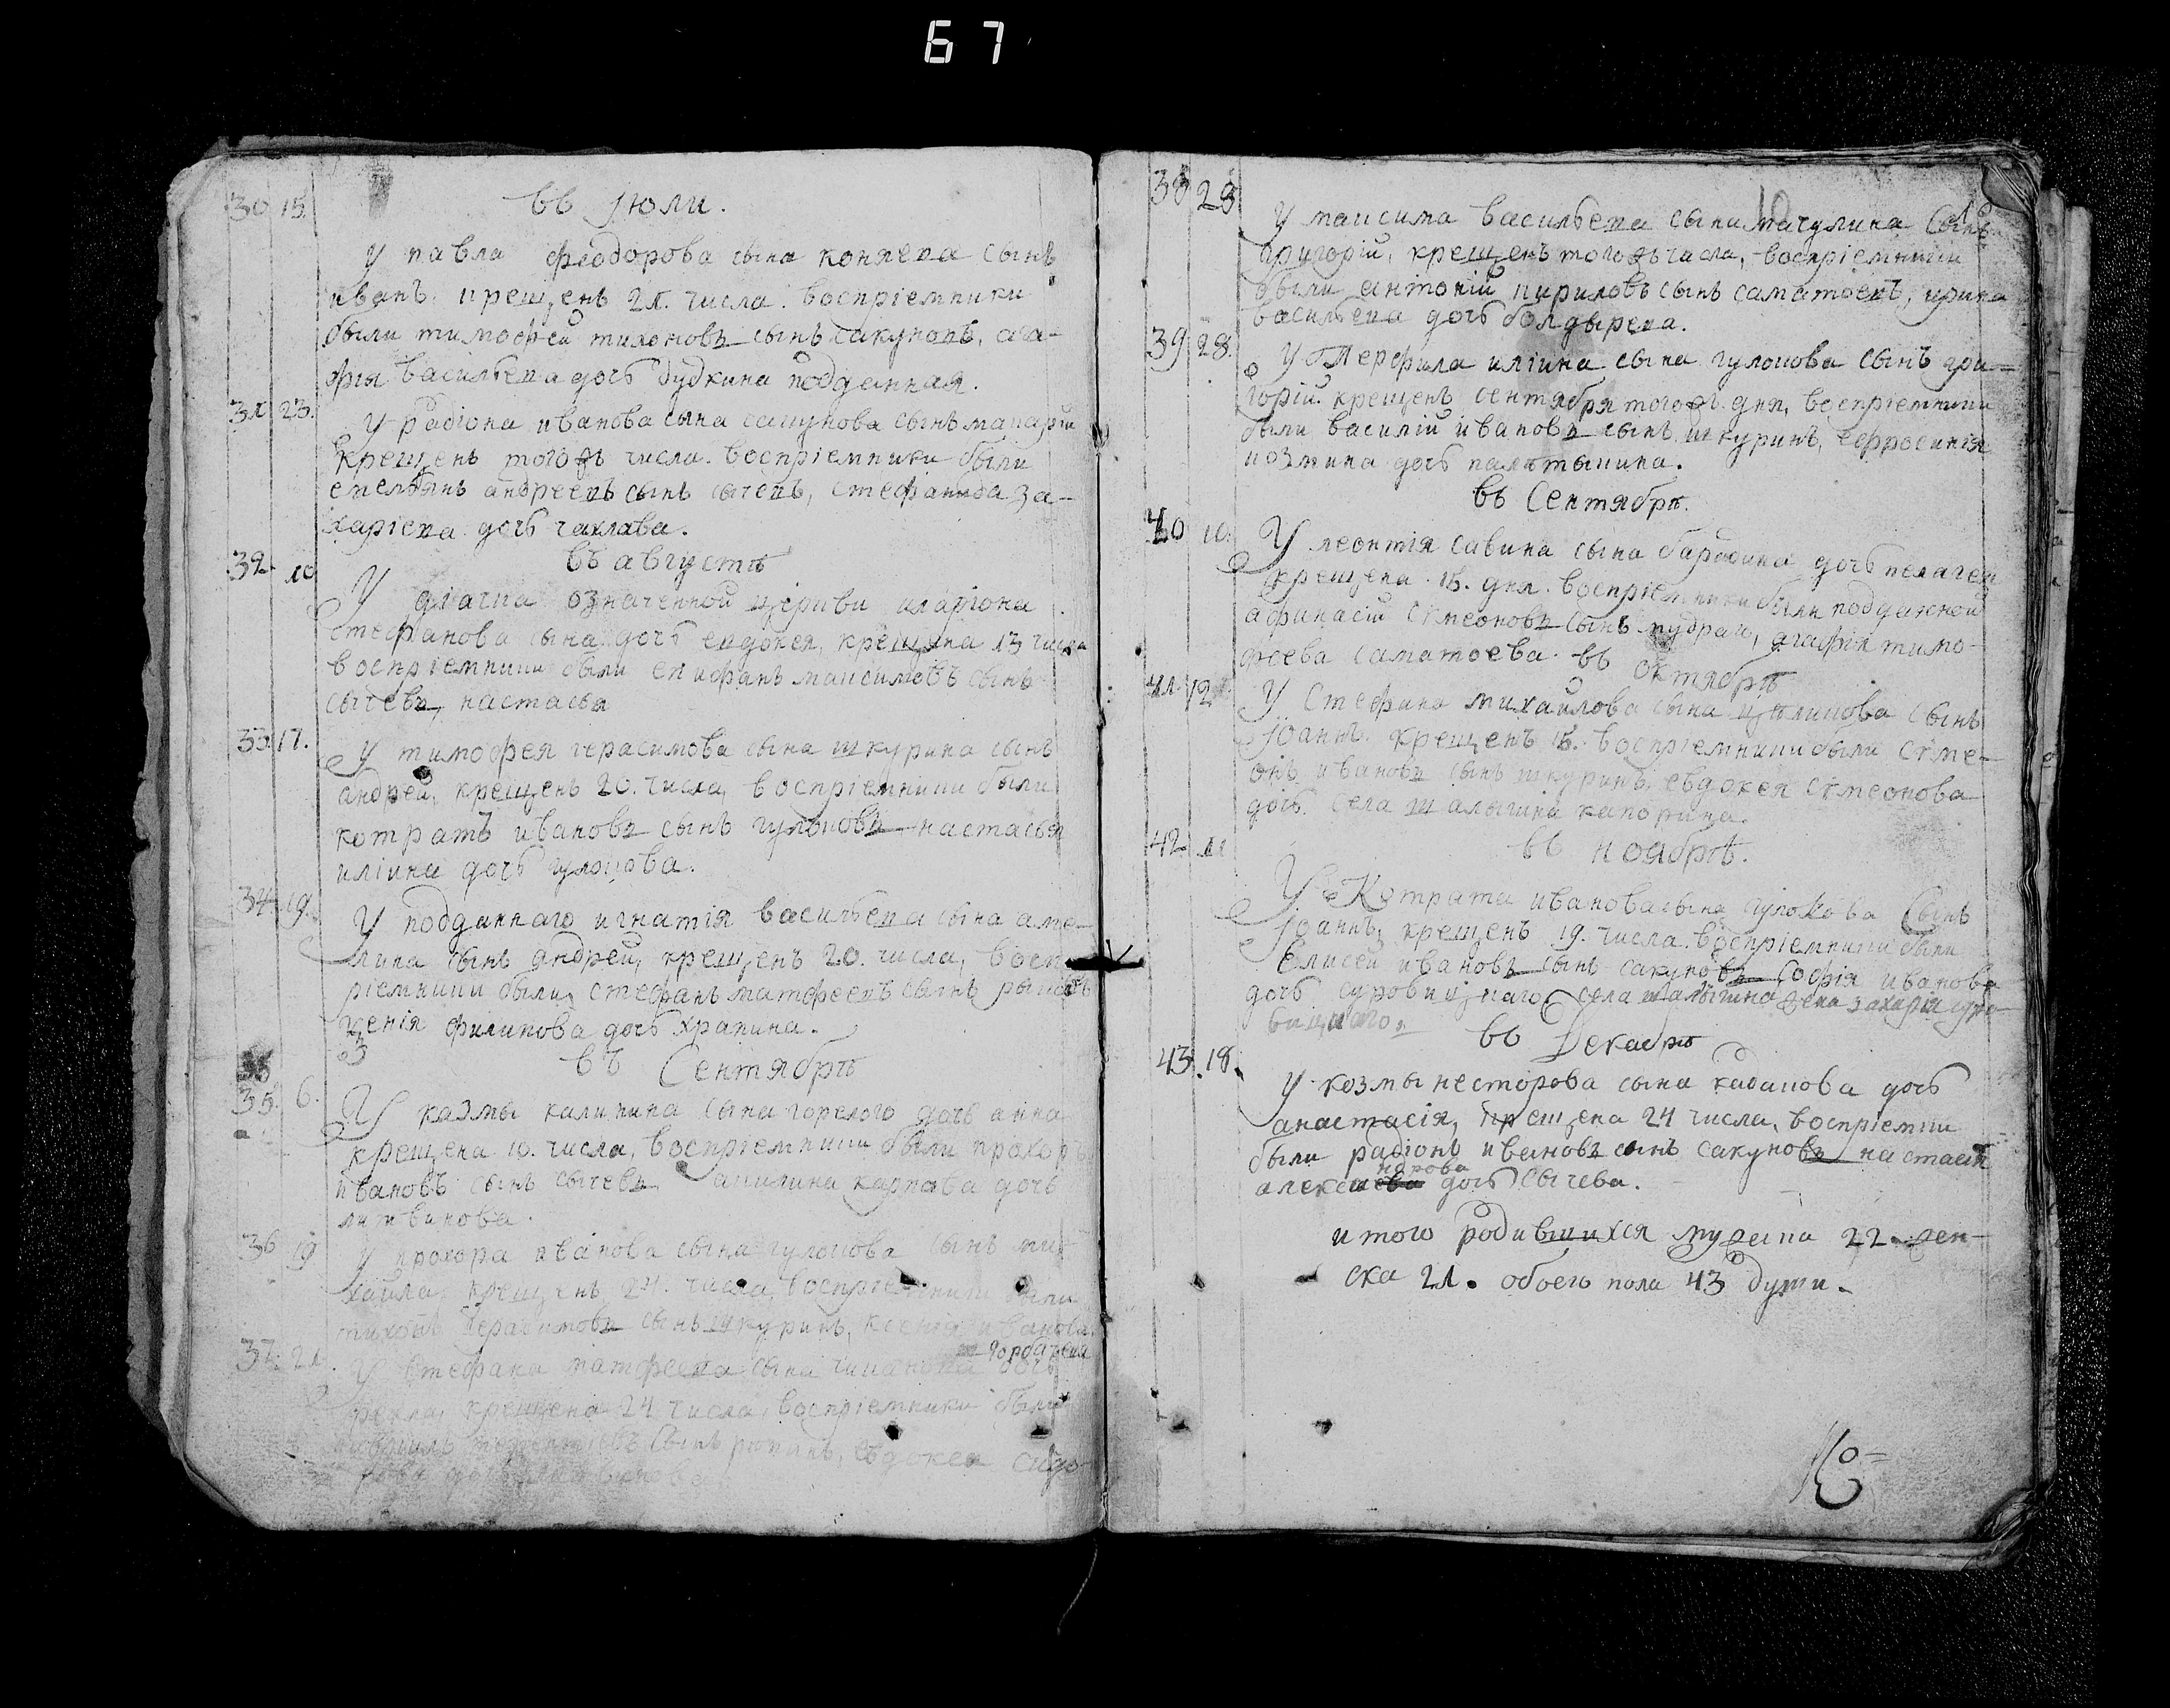 67
въ Iюли.
30 15. У павла феодорова сына коняева сынъ
иванъ. крещенъ 21. числа. воспрiемники
были тимофей тихоновъ сынъ сакуновъ, ага-
фiя васильева дочь дудкина подданная.
31 23. У радiона иванова сына сакунова сынъ макарiй
крещенъ тогожъ числа. воспрiемники были
емельянъ андреевъ сынъ сычевъ, стефанида за-
харiева дочь чаклава.
въ августѣ
32 10 У дiачка означенной церкви иларiона
стефанова сына дочь евдокея, крещена 13 числа
воспрiемники были епифанъ максимовъ сынъ
сычевъ, настасья
33. 17. У тимофея герасимова сына шкурина сынъ
андрей, крещенъ 20. числа, воспрiемники были
котратъ ивановъ сынъ гулоковъ настасья
илiина дочь гулокова.
34 19. У подданнаго игнатiя васильева сына аме-
лина сынъ андрей, крещенъ 20. числа, восп-
рiемники были, стефанъ матфеевъ сынъ
ѯенiя филипова дочь храпина.
въ Сентябрѣ
35. 6. У казмы калинина сына горелого дочь анна
крещена 10. числа, воспрiемники были прохоръ
ивановъ сынъ сычевъ, акилина карпова дочь
литвинова.
36 19 У прохора иванова сына гулокова сынъ ми-
хаила, крещенъ 24. числа, воспрiемники были
тихонъ герасимовъ сынъ шкуринъ, ксенiя иванова
горбачева
37. 21. У стефана матфеева сына дочь
фекла, крещена 24 числа, воспрiемники были
сынъ евдокея сидо-
рова дочь
38 23 У максима васильева сына мачулина сынъ
григорiй, крещенъ тогожъ числа, воспрiемники
были антонiй кириловъ сынъ саматоевъ, ирина
васильева дочь болдырева.
39 28. У перфила илiина сына гулокова сынъ гри-
горiй. крещенъ сентября тогожъ. дня, воспрiемники
были василiй ивановъ сынъ шкуринъ, ефросинiя
козмина дочь палитыкина.
въ Сентябрѣ.
40 10. У леонтiя савина сына бародина дочь пелагея
крещена. 15. дня. воспрiемники были подданной
афанасiй сѵмеоновъ сынъ мудраго, агафiя тимо-
феева саматоева. въ октябрѣ
41. 12 У Стефана михайлова сына цѣликова сынъ
Iоаннъ. крещенъ 15. воспрiемники были сѵме-
онъ ивановъ сынъ шкуринъ, евдокея сѵмеонова
дочь. села шалыгина капорина.
въ ноябрѣ.
42 11 У Котрата иванова сына гулокова сынъ
Iоаннъ, крещенъ 19. числа. воспрiемники были
Елисей ивановъ сынъ сакуновъ софiя иванова
дочь суровицкаго, села шалыгина жена захарiя суро-
вицкаго.
въ Декабрѣ
43. 18. У козмы несторова сына кабанова дочь
анастасiя, крещена 24 числа, воспрiемни
были радiонъ ивановъ сынъ сакуновъ настасiя
алексанрова дочь Сычева.
итого родившихся мужеска 22. жен-
ска 21. обоего пола 43 души.